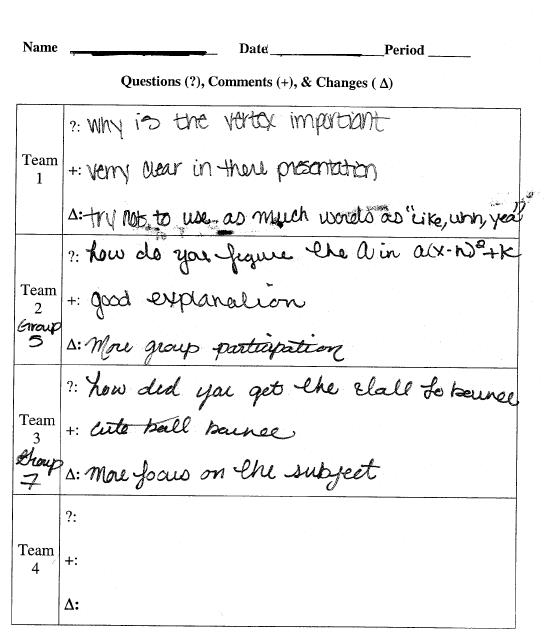 Name Date Period
Questions (?), Comments (+), & Changes ( Δ)
Team 1
?: why is the vertex important
+: verry clear in there presentation
Δ: try not to use as much words as "Like, uhh, yea"
Team 2
Group 5
?: how do you figure the a in a(x-h)²+k
+: good explanation
Δ: More group participation
Team 3
Group 7
?: how did you get the ball to bounce
+: cute ball bounce
Δ: More focus on the subject
Team 4
?:
+:
Δ: